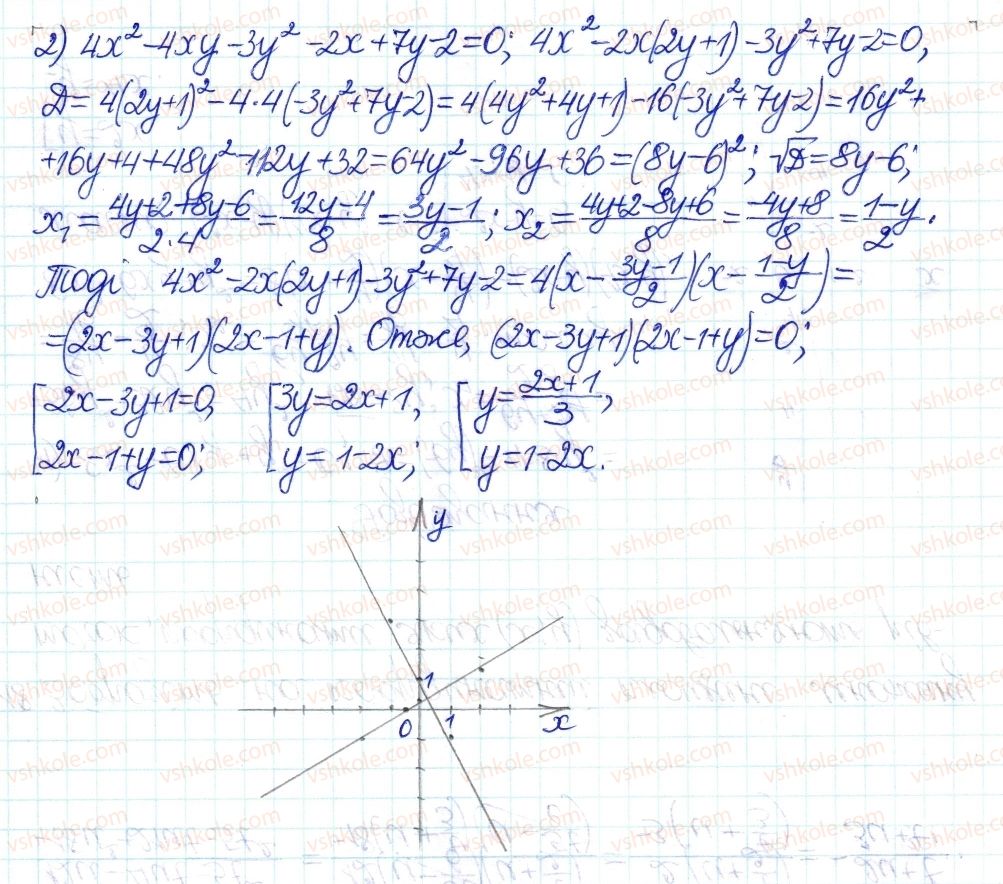 2) 4x² - 4xy - 3y² - 2x + 7y - 2 = 0; 4x² - 2x(2y+1) - 3y² + 7y - 2 = 0,
Д = 4(2y+1)² - 4·4(-3y² + 7y - 2) = 4(4y² + 4y + 1) - 16(-3y² + 7y - 2) = 16y² +
+ 16y + 4 + 48y² - 112y + 32 = 64y² - 96y + 36 = (8y - 6)²; √Д = 8y - 6;
x₁ = (4y+2+8y-6)/(2·4) = (12y-4)/8 = (3y-1)/2; x₂ = (4y+2-8y+6)/8 = (-4y+8)/8 = (1-y)/2.
Тоді 4x² - 2x(2y+1) - 3y² + 7y - 2 = 4(x - (3y-1)/2)(x - (1-y)/2) =
= (2x - 3y + 1)(2x - 1 + y). Отже, (2x - 3y + 1)(2x - 1 + y) = 0;
[2x - 3y + 1 = 0, [3y = 2x + 1, [y = (2x+1)/3,
2x - 1 + y = 0; y = 1 - 2x; y = 1 - 2x.
y
1
0 1 x
vshkole.com